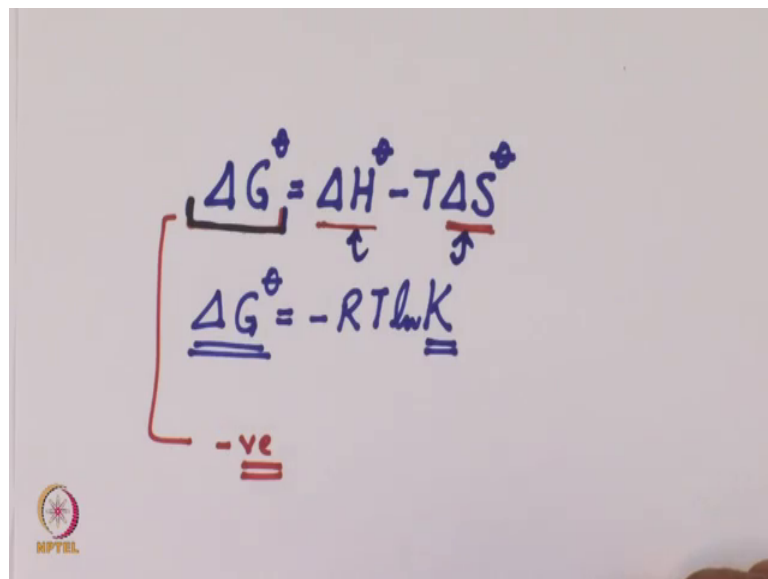 ΔG^θ = ΔH^θ - TΔS^θ
ΔG^θ = - RT ln K
- ve
NPTEL